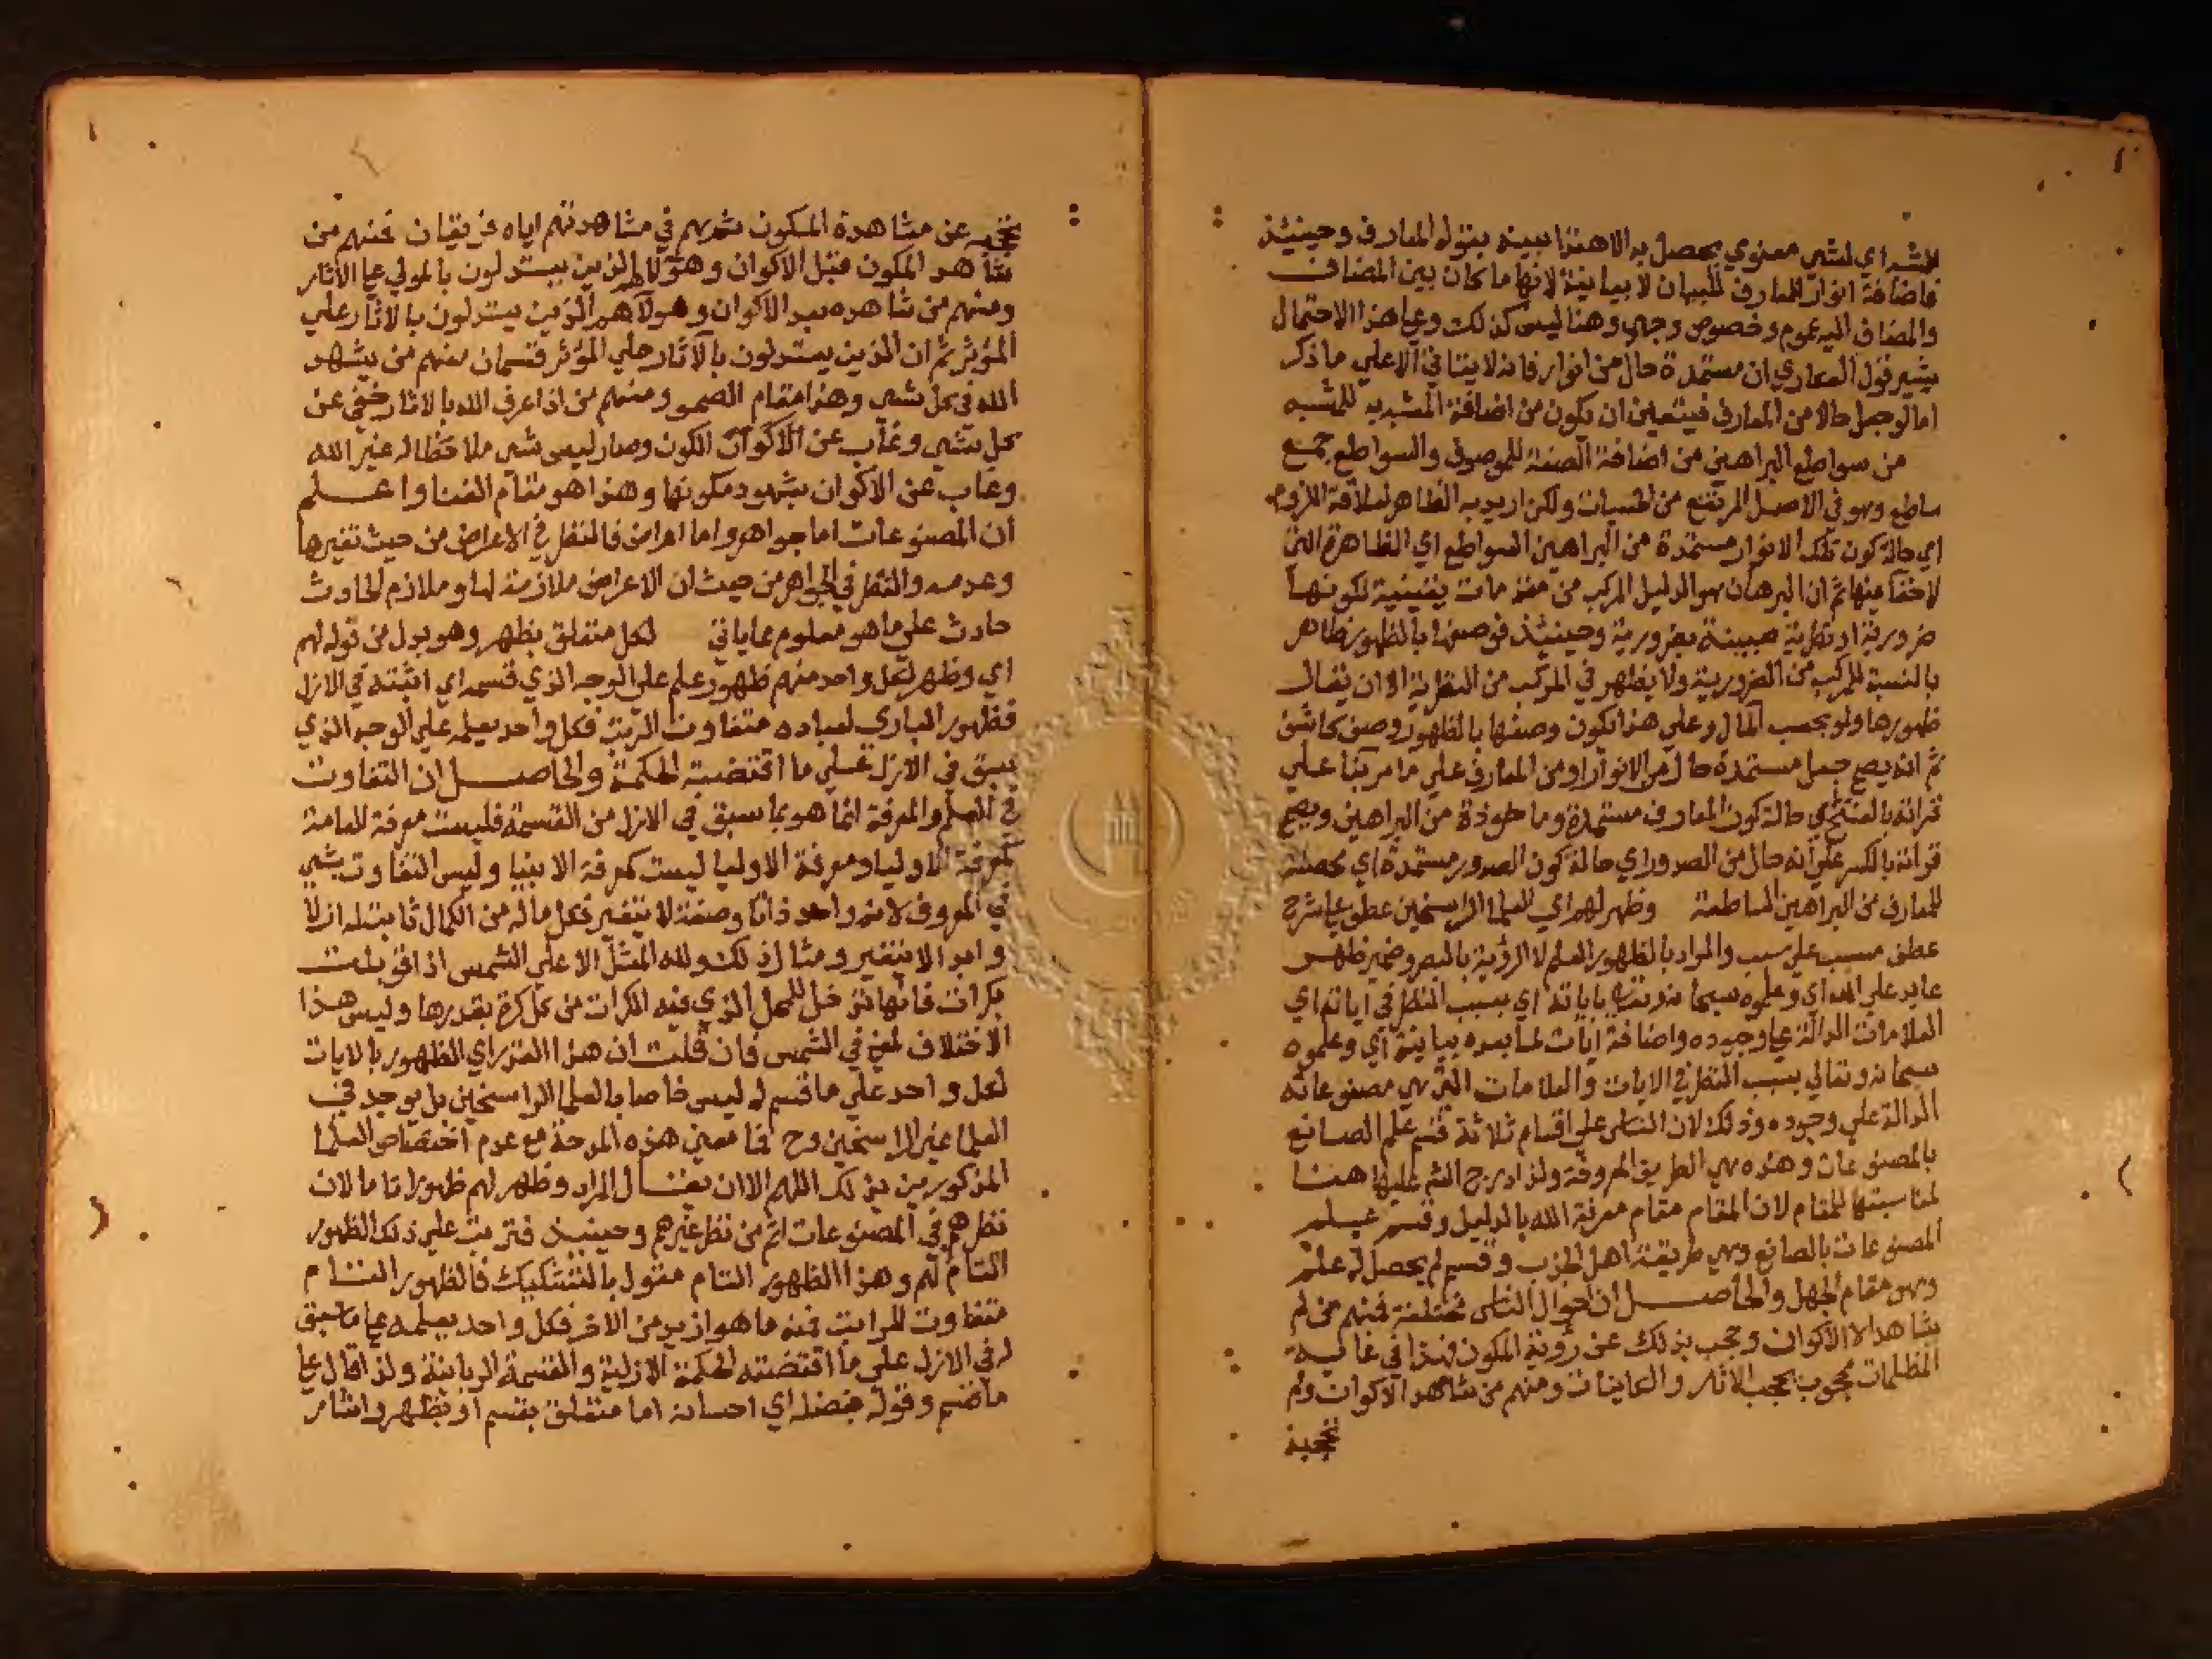 للشد اي لشي معنوي يحصل به الاهتدا بينه بقوله المعارف وحينئذ
فاضافة انوار المعارف للبيان لا بيانية لانها ما كان بين المضاف
والمضاف اليه عموم وخصوص وجهي وهنا ليس كذلك وعلي هذا الاحتمال
يشير قول العماري ان مستمدة حال من انوار فانه لا ينافي الاعلي ما ذكر
اما لو جعل حالا من المعارف فيتعين ان يكون من اضافة المشبه به للمشبه
من سواطع البراهين من اضافة الصفة للموصوف والسواطع جمع
ساطع وهو في الاصل المرتفع من الحسيات ولكن اريد به الظاهر لعلاقة اللزوم
اي حالة كون تلك الانوار مستمدة من البراهين السواطع اي الظاهرة التي
لا خفا فيها ثم ان البرهان هو الدليل المركب من مقدمات يقينية لكونها
ضرورية او نظرية مبينة بضرورية وحينئذ فوصفها بالظهور ظاهر
بالنسبة للمركب من الضرورية ولا يظهر في المركب من النظرية الا ان يقال
ظهورها ولو بحسب المال وعلي هذا يكون وصفها بالظهور وصف كاشف
ثم انه يصح جعل مستمدة حال من الانوار او من المعارف علي ما مر بنا علي
قرائة بالفتح اي حالة كون المعارف مستمدة وماخوذة من البراهين ويصح
قرائة بالكسر علي انه حال من الصدور اي حالة كون الصدور مستمدة اي محصلة
للمعارف من البراهين الساطعة وظهر لهم اي للعلما الراسخين عطف علي شرح
عطف مسبب علي سبب والمراد بالظهور العلم لا الرؤية بالبصر وضمير ظهر
عايد علي الله اي وعلموه سبحانه وتعالي باياته اي بسبب النظر في اياته اي
العلامات الدالة علي وجوده واضافة ايات لما بعده بيانية اي وعلموه
سبحانه وتعالي بسبب النظر في الايات والعلامات التي هي مصنوعاته
الدالة علي وجوده وذلك لان الناس علي اقسام ثلاثة قسم علم الصانع
بالمصنوعات وهذه هي الطريق المعروفة ولذا درج الشم عليها هنا
لمناسبتها للمقام لان المقام مقام معرفة الله بالدليل وقسم علم
المصنوعات بالصانع وهي طريقة اهل الجذب وقسم لم يحصل له علم
وهو مقام الجهل والحاصل ان احوال الناس مختلفة فمنهم من لم
يشاهد الا الاكوان وحجب بذلك عن رؤية المكون فهذا في غاية
الظلمات محجوب بحجب الاثار والكاينات ومنهم من شاهد الاكوان ولم
تحجبه
تحجبه عن مشاهدة المكون ثم هم في مشاهدتهم اياه فريقان فمنهم من
شاهد المكون قبل الاكوان وهؤلا هم الذين يستدلون بالمولي علي الاثار
ومنهم من شاهده بعد الاكوان وهولا هم الذين يستدلون بالاثار علي
المؤثر ثم ان الذين يستدلون بالاثار علي المؤثر قسمان منهم من يشهد
الله في كل شي وهذا مقام الصحو ومنهم من اذا عرف الله بالاثار خفي عن
كل شي وغاب عن الاكوان الكون وصار ليس شي ملاحظا له غير الله
وغاب عن الاكوان بشهود مكونها وهذا هو مقام الفنا واعلم
ان المصنوعات اما جواهر واما اعراض فالنظر في الاعراض من حيث تغيرها
وعدمه والنظر في الجواهر من حيث ان الاعراض ملازمة لها وملازم الحادث
حادث علي ما هو معلوم مما ياتي لكل متعلق بظهر وهو بدل من قوله لهم
اي وظهر لكل واحد منهم ظهور علم علي الوجه الذي قسمه اي اثبته في الازل
فظهور الباري لعباده متفاوت الرتب فكل واحد يعلمه علي الوجه الذي
سبق في الازل علي ما اقتضته الحكمة والحاصل ان التفاوت
في العلم والمعرفة انما هو بما سبق في الازل من القسمة فليست معرفة العامة
كمعرفة الاوليا ومعرفة الاوليا ليست كمعرفة الانبيا وليس التفاوت بشي
في المعروف لانه واحد ذاتا وصفة لا يتغير فكل ما له من الكمال ثابت له ازلا
وابدا لا يتغير ومثال ذلك ولله المثل الاعلي الشمس اذا قوبلت
بكرات فانها تدخل للمحل الذي فيه الكرات من كل كرة بقدرها وليس هذا
الاختلاف لمعني في الشمس فان قلت ان هذا القدر اي الظهور بالايات
لكل واحد علي ما قسم له ليس خاصا بالعلما الراسخين بل يوجد في
العلما غير الراسخين وح فما معني هذه المدحة مع عدم اختصاص العلما
المذكورين بذلك اللهم الا ان يقال المراد وظهر لهم ظهورا تاما لان
نظرهم في المصنوعات اتم من نظر غيرهم وحينيذ فترتب علي ذلك الظهور
التام لهم وهذا الظهور التام مقول بالتشكيك فالظهور التام
متفاوت المراتب فمنه ما هو ازيد من الاخر فكل واحد يعلمه علي ما سبق
له في الازل علي ما اقتضته الحكمة الازلية والقسمة الربانية ولذا قال علي
ما قسم وقوله بفضله اي احسانه اما متعلق بقسم او بظهر واشار